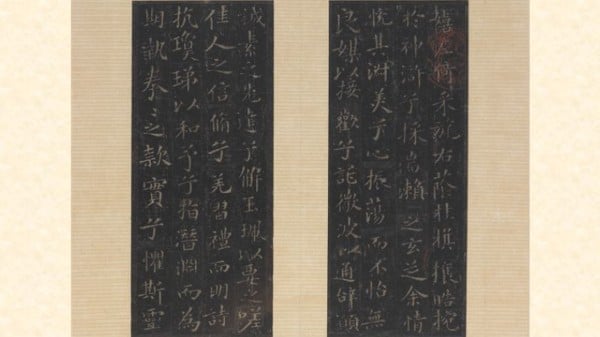 嬉左倚采旄右蔭桂旗攘皓捥
於神滸兮採湍瀨之玄芝余情
悅其淑美兮心振蕩而不怡無
良媒以接歡兮託微波以通辭願
誠素之先達兮解玉珮以要之嗟
佳人之信脩兮羌習禮而明詩
抗瓊珶以和予兮指潛淵而為
期執眷々之款實兮懼斯靈